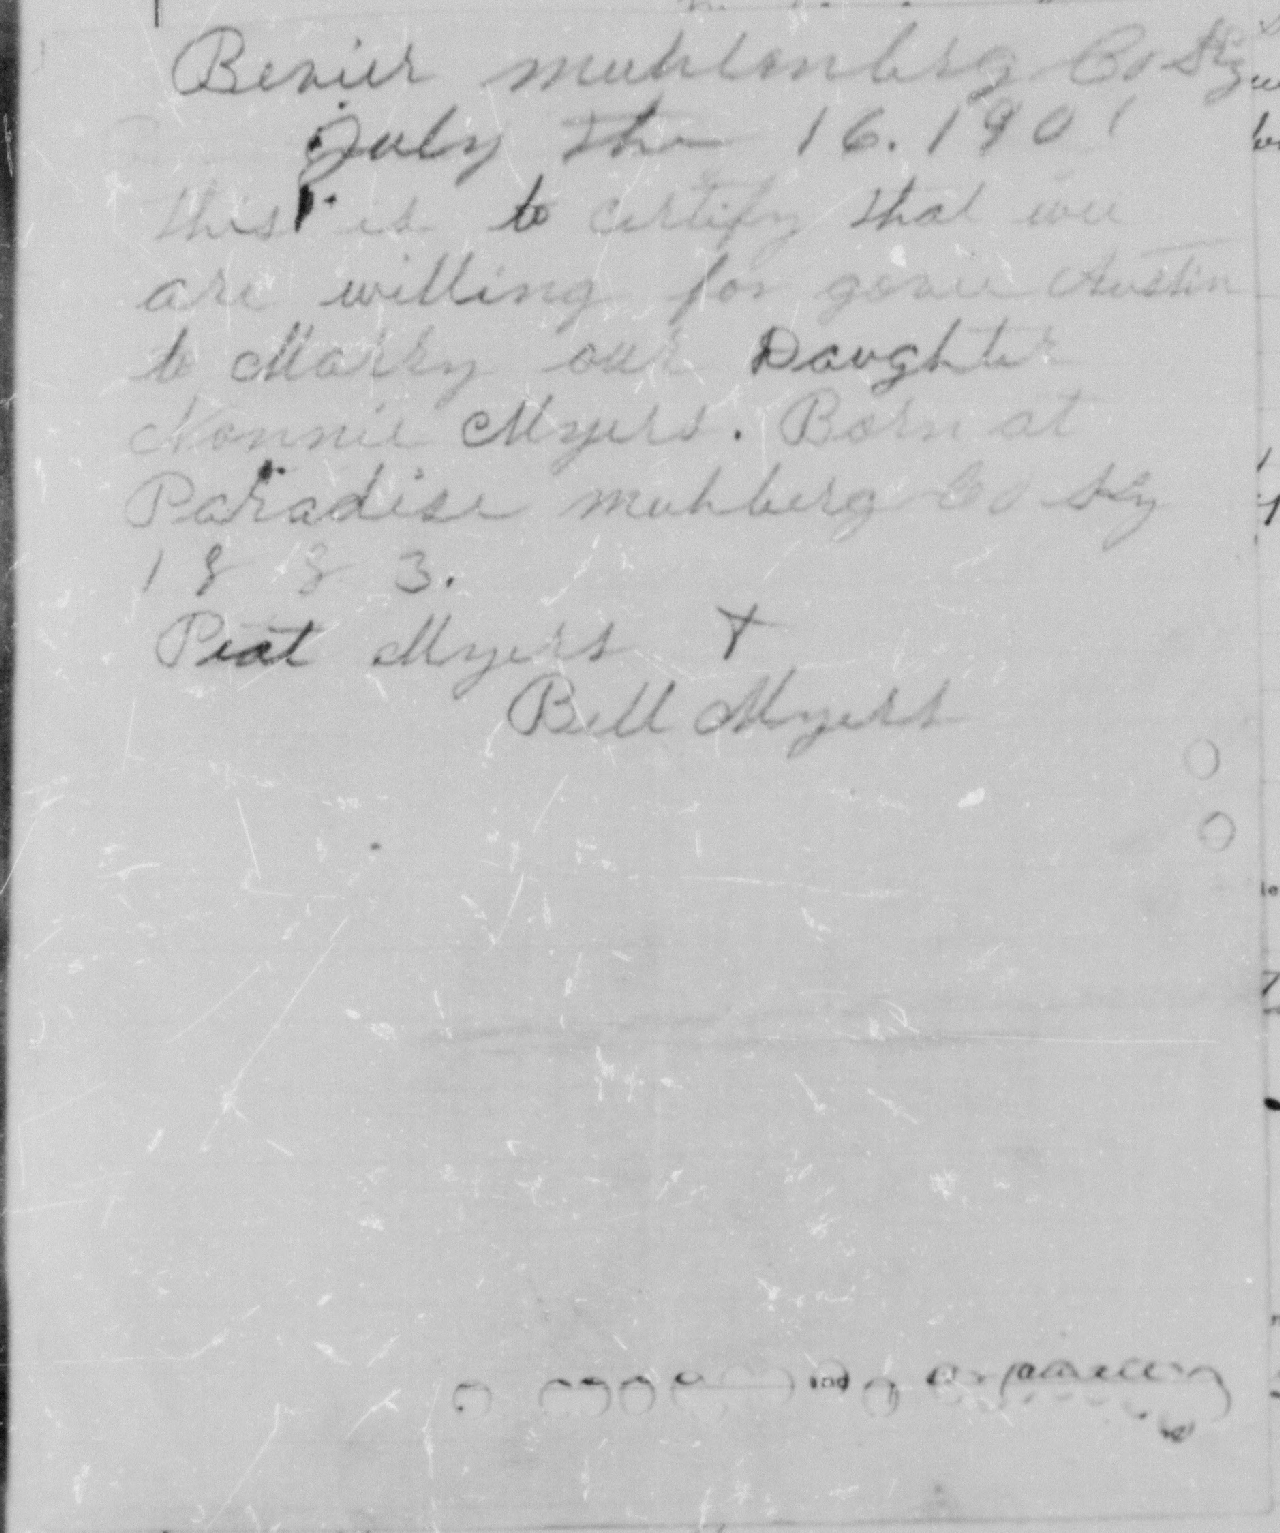 Bevier muhlenberg Co Ky
July the 16. 1901
this is to certify that wee
are willing for genie Austin
to Marry our Daughter
Nonnie Myers. Born at
Paradise muhberg Co Ky
1883.
Peat Myers +
Bell Myers